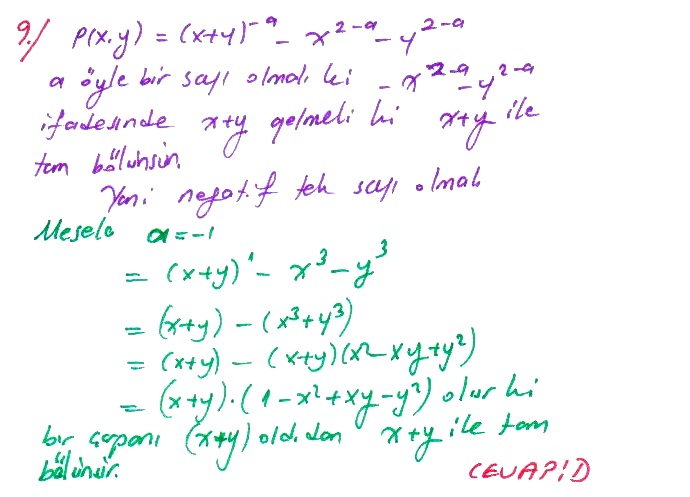 9./ P(x,y) = (x+y)^-a - x^2-a - y^2-a
a öyle bir sayı olmalı ki - x^2-a - y^2-a
ifadesinde x+y gelmeli ki x+y ile
tam bölünsün.
Yani negatif tek sayı olmalı
Mesela a = -1
= (x+y)^1 - x^3 - y^3
= (x+y) - (x^3+y^3)
= (x+y) - (x+y)(x^2-xy+y^2)
= (x+y).(1-x^2+xy-y^2) olur ki
bir çarpanı (x+y) oldıdan x+y ile tam
bölünür. CEVAP:D